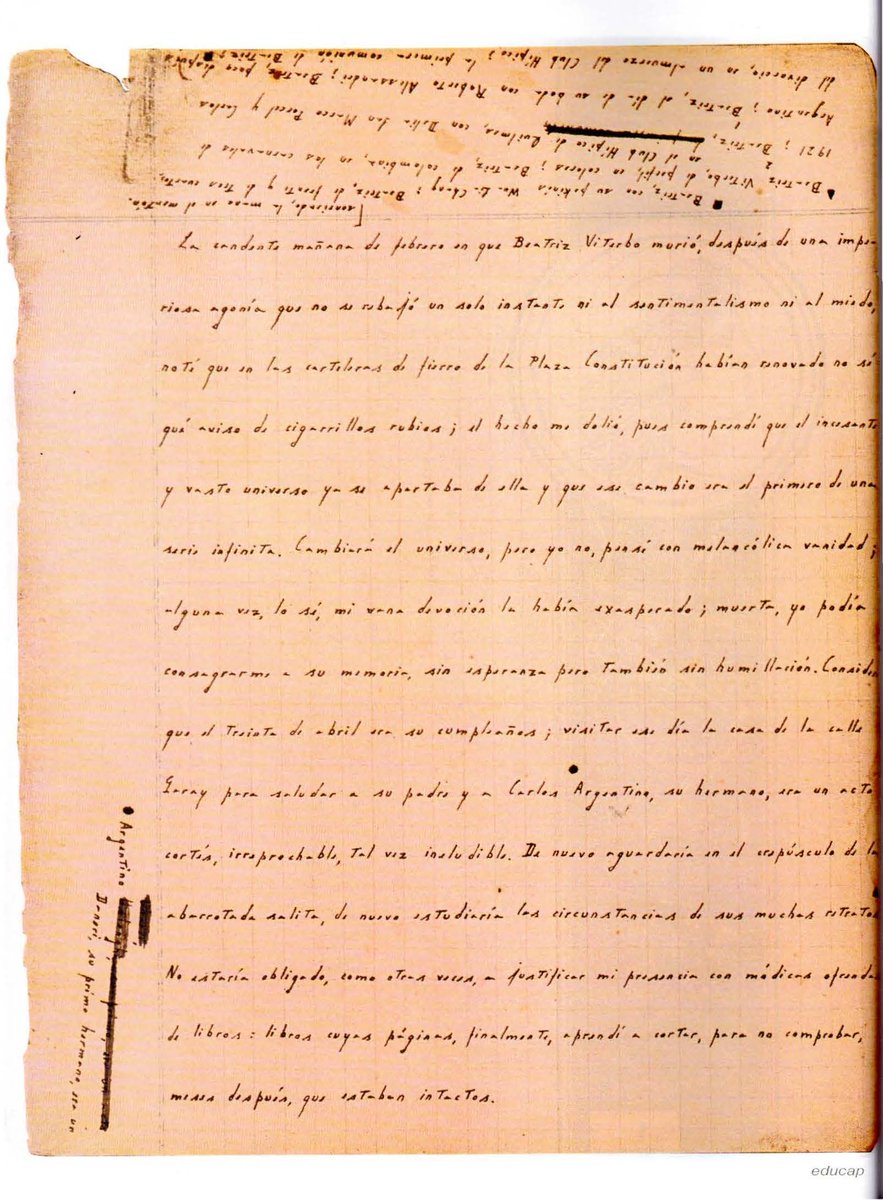 del divorcio, en un almuerzo del Club Hípico; la primera comunión de Beatriz;
Argentino; Beatriz, el día de su boda con Roberto Alessandri; Beatriz, poco después
1921; Beatriz, en el Club Hípico de Quilmes, con Delia San Marco Porcel y Carlos
Beatriz Viterbo, de perfil, en colores; Beatriz, de colombina, en los carnavales de
Beatriz, con su pekinés Wu Li Chang; Beatriz, de frente y de tres cuartos,
[sonriendo, la mano en el mentón.
La candente mañana de febrero en que Beatriz Viterbo murió, después de una impe-
riosa agonía que no se rebajó un solo instante ni al sentimentalismo ni al miedo,
noté que en las carteleras de fierro de la Plaza Constitución habían renovado no sé
qué aviso de cigarrillos rubios; el hecho me dolió, pues comprendí que el incesante
y vasto universo ya se apartaba de ella y que ese cambio era el primero de una
serie infinita. Cambiará el universo, pero yo no, pensé con melancólica vanidad;
alguna vez, lo sé, mi vana devoción la había exasperado; muerta, yo podía
consagrarme a su memoria, sin esperanza pero también sin humillación. Consider
que el treinta de abril era su cumpleaños; visitar ese día la casa de la calle
Garay para saludar a su padre y a Carlos Argentino, su hermano, era un acto
cortés, irreprochable, tal vez ineludible. De nuevo aguardaría en el crepúsculo de la
abarrotada salita, de nuevo estudiaría las circunstancias de sus muchos retratos
No estaría obligado, como otras veces, a justificar mi presencia con módicas ofrendas
de libros: libros cuyas páginas, finalmente, aprendí a cortar, para no comprobar,
meses después, que estaban intactos.
Argentino
Daneri, su primo hermano, era un
educap